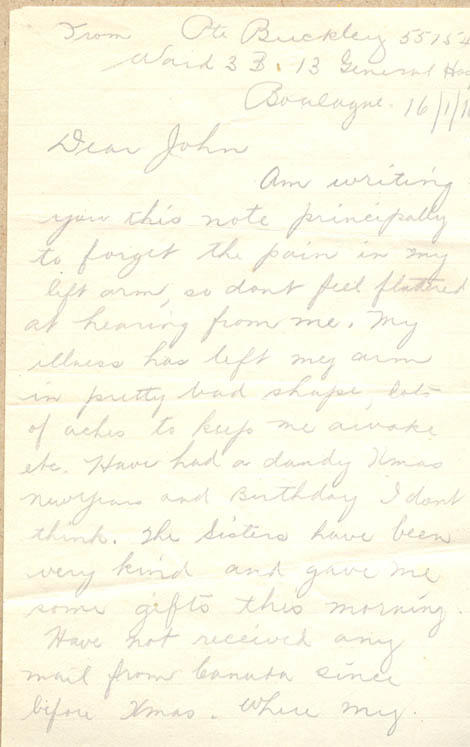 From Pte Buckley 55754
Ward 3 B. 13 General Hos
Boulogne. 16/1/16
Dear John
Am writing
you this note principally
to forget the pain in my
left arm, so dont feel flatered
at hearing from me. My
illness has left my arm
in pretty bad shape, lots
of aches to keep me awake
etc. Have had a dandy Xmas
newyears and Birthday I dont
think. The Sisters have been
very kind and gave me
some gifts this morning.
Have not received any
mail from Canada since
before Xmas. Where my